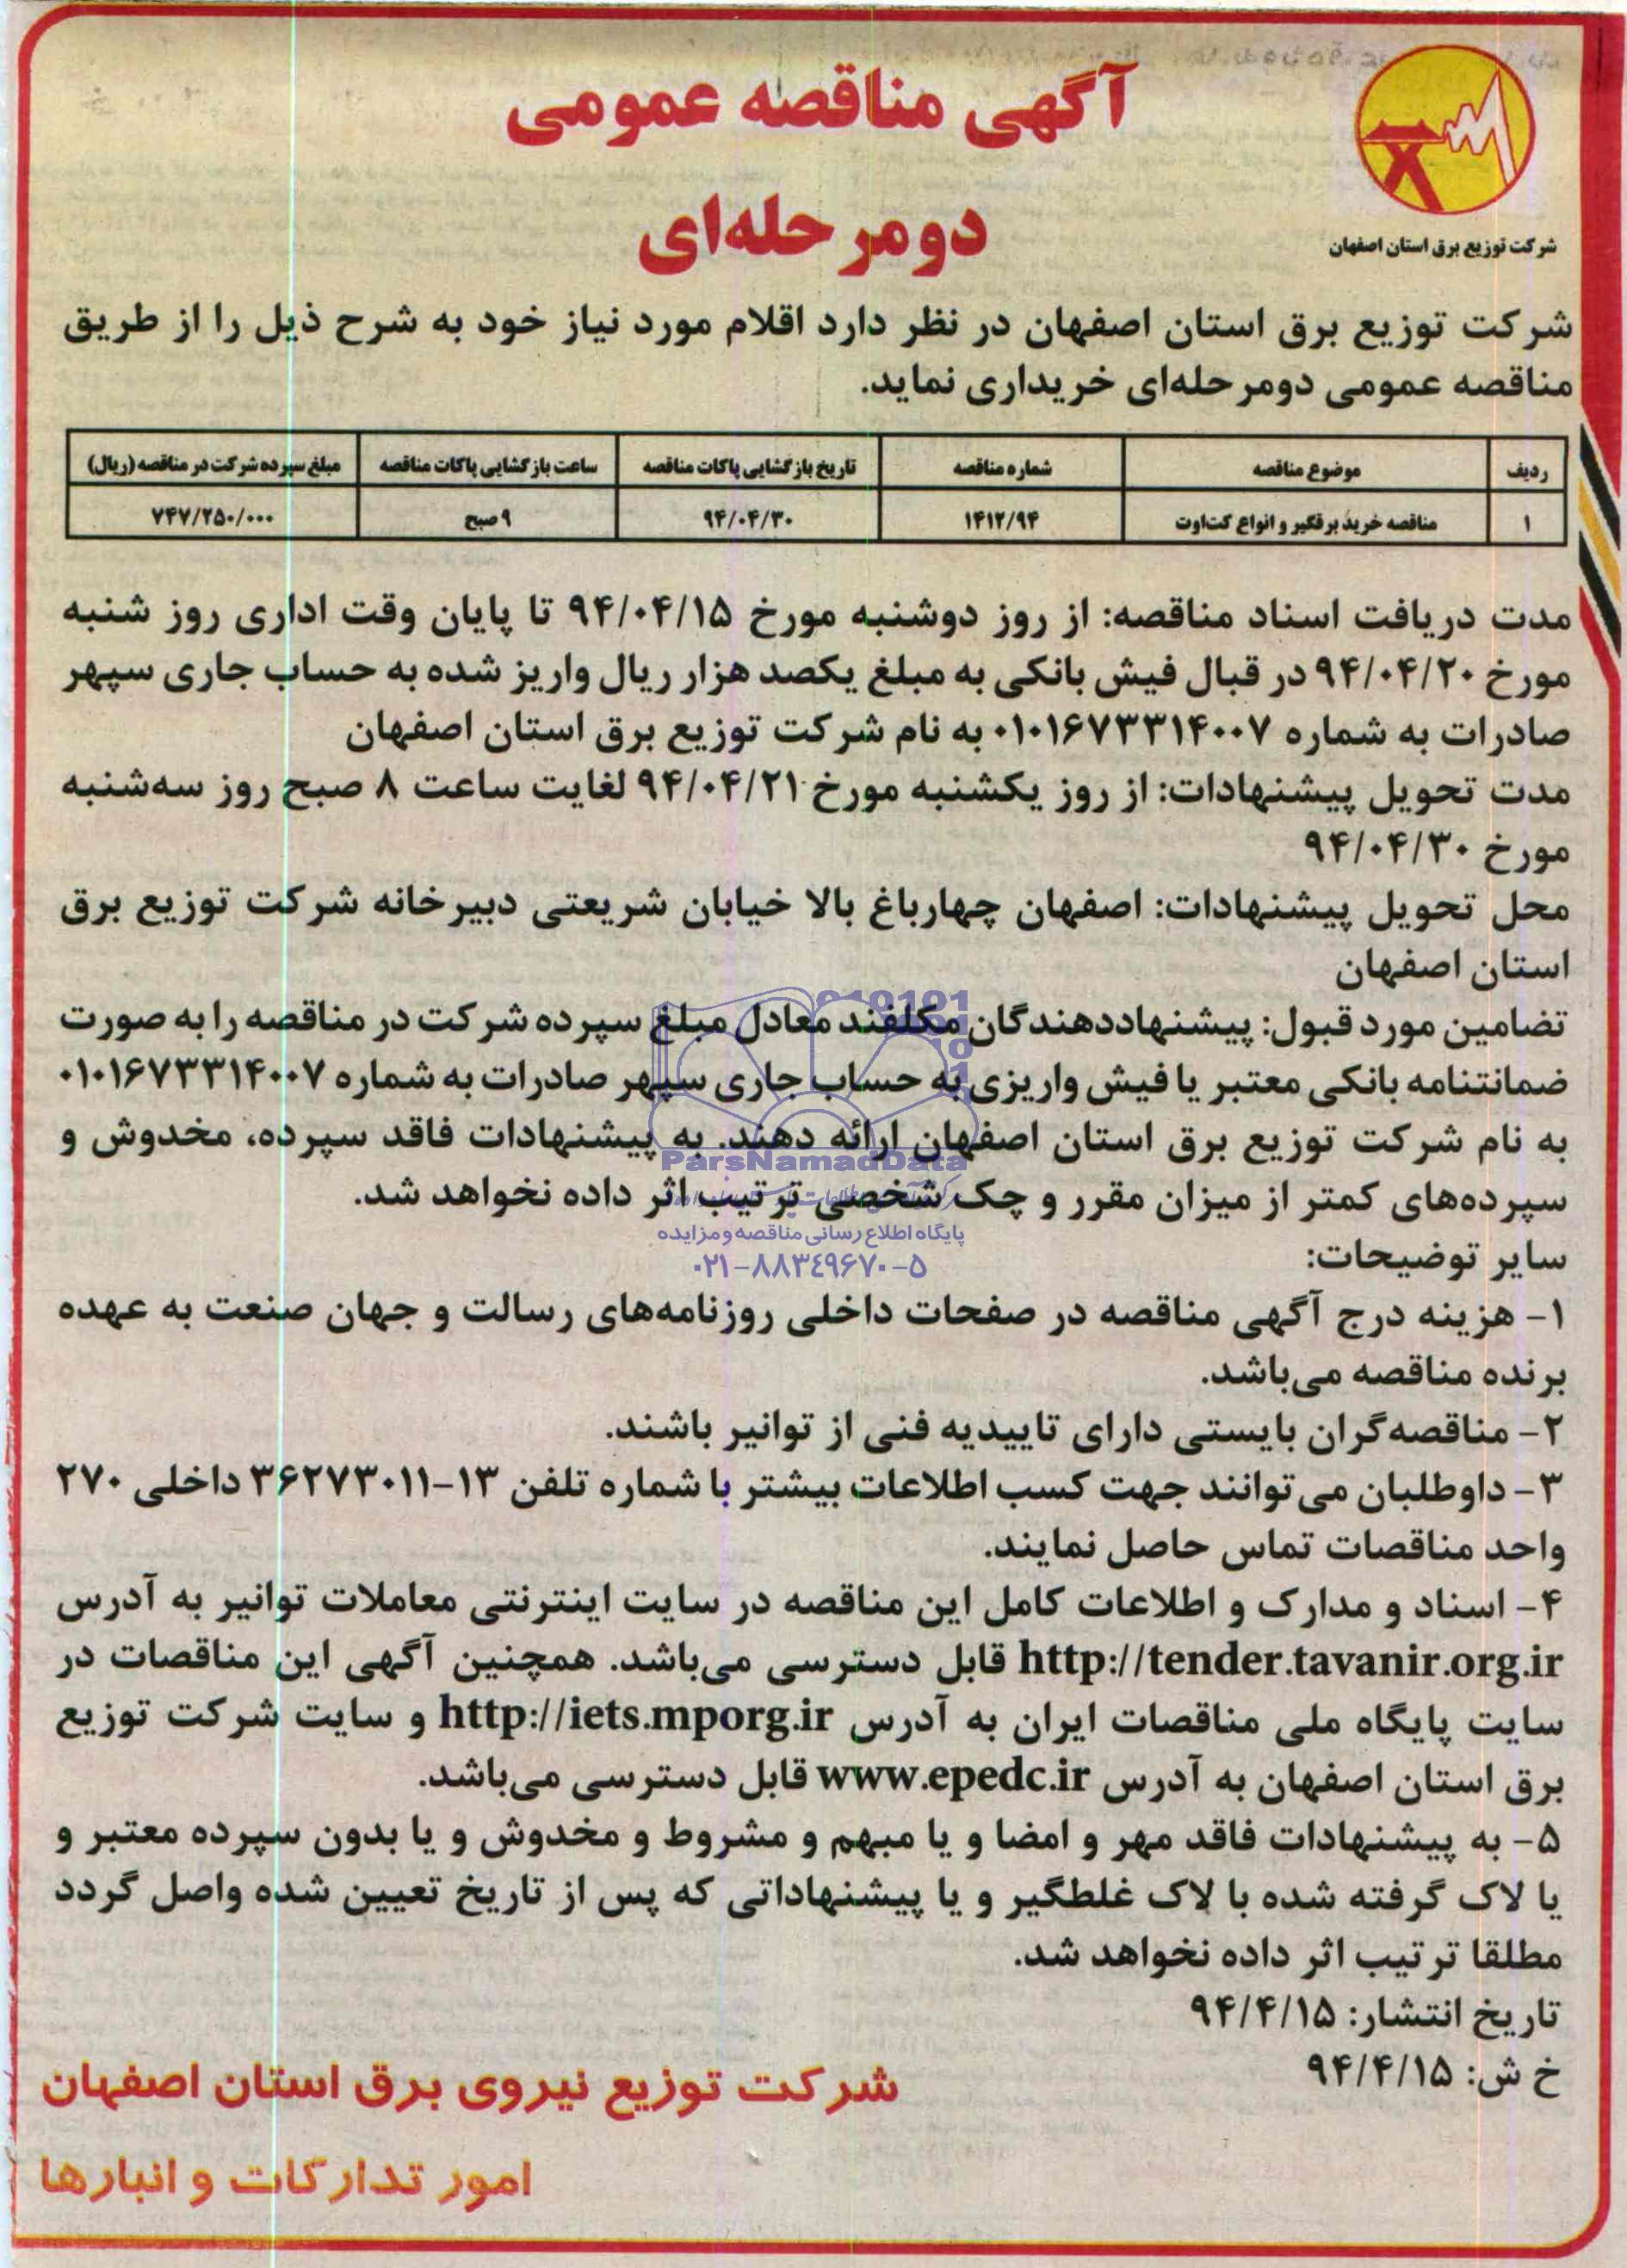 آگهی مناقصه عمومی
دومرحله‌ای
شرکت توزیع برق استان اصفهان
شرکت توزیع برق استان اصفهان در نظر دارد اقلام مورد نیاز خود به شرح ذیل را از طریق
مناقصه عمومی دومرحله‌ای خریداری نماید.
ردیف موضوع مناقصه شماره مناقصه تاریخ بازگشایی پاکات مناقصه ساعت بازگشایی پاکات مناقصه مبلغ سپرده شرکت در مناقصه (ریال)
۱ مناقصه خرید برقگیر و انواع کت‌اوت ۱۴۱۲/۹۴ ۹۴/۰۴/۳۰ ۹ صبح ۷۴۷/۲۵۰/۰۰۰
مدت دریافت اسناد مناقصه: از روز دوشنبه مورخ ۹۴/۰۴/۱۵ تا پایان وقت اداری روز شنبه
مورخ ۹۴/۰۴/۲۰ در قبال فیش بانکی به مبلغ یکصد هزار ریال واریز شده به حساب جاری سپهر
صادرات به شماره ۰۱۰۱۶۷۳۳۱۴۰۰۷ به نام شرکت توزیع برق استان اصفهان
مدت تحویل پیشنهادات: از روز یکشنبه مورخ ۹۴/۰۴/۲۱ لغایت ساعت ۸ صبح روز سه‌شنبه
مورخ ۹۴/۰۴/۳۰
محل تحویل پیشنهادات: اصفهان چهارباغ بالا خیابان شریعتی دبیرخانه شرکت توزیع برق
استان اصفهان
تضامین مورد قبول: پیشنهاددهندگان مکلفند معادل مبلغ سپرده شرکت در مناقصه را به صورت
ضمانتنامه بانکی معتبر یا فیش واریزی به حساب جاری سپهر صادرات به شماره ۰۱۰۱۶۷۳۳۱۴۰۰۷
به نام شرکت توزیع برق استان اصفهان ارائه دهند. به پیشنهادات فاقد سپرده، مخدوش و
سپرده‌های کمتر از میزان مقرر و چک شخصی ترتیب اثر داده نخواهد شد.
ParsNamadData
پایگاه اطلاع رسانی مناقصه و مزایده
۰۲۱-۸۸۳۴۹۶۷۰-۵
سایر توضیحات:
۱- هزینه درج آگهی مناقصه در صفحات داخلی روزنامه‌های رسالت و جهان صنعت به عهده
برنده مناقصه می‌باشد.
۲- مناقصه‌گران بایستی دارای تاییدیه فنی از توانیر باشند.
۳- داوطلبان می‌توانند جهت کسب اطلاعات بیشتر با شماره تلفن ۱۳-۳۶۲۷۳۰۱۱ داخلی ۲۷۰
واحد مناقصات تماس حاصل نمایند.
۴- اسناد و مدارک و اطلاعات کامل این مناقصه در سایت اینترنتی معاملات توانیر به آدرس
http://tender.tavanir.org.ir قابل دسترسی می‌باشد. همچنین آگهی این مناقصات در
سایت پایگاه ملی مناقصات ایران به آدرس http://iets.mporg.ir و سایت شرکت توزیع
برق استان اصفهان به آدرس www.epedc.ir قابل دسترسی می‌باشد.
۵- به پیشنهادات فاقد مهر و امضا و یا مبهم و مشروط و مخدوش و یا بدون سپرده معتبر و
یا لاک گرفته شده با لاک غلطگیر و یا پیشنهاداتی که پس از تاریخ تعیین شده واصل گردد
مطلقا ترتیب اثر داده نخواهد شد.
تاریخ انتشار: ۹۴/۴/۱۵
خ ش: ۹۴/۴/۱۵
شرکت توزیع نیروی برق استان اصفهان
امور تدارکات و انبارها